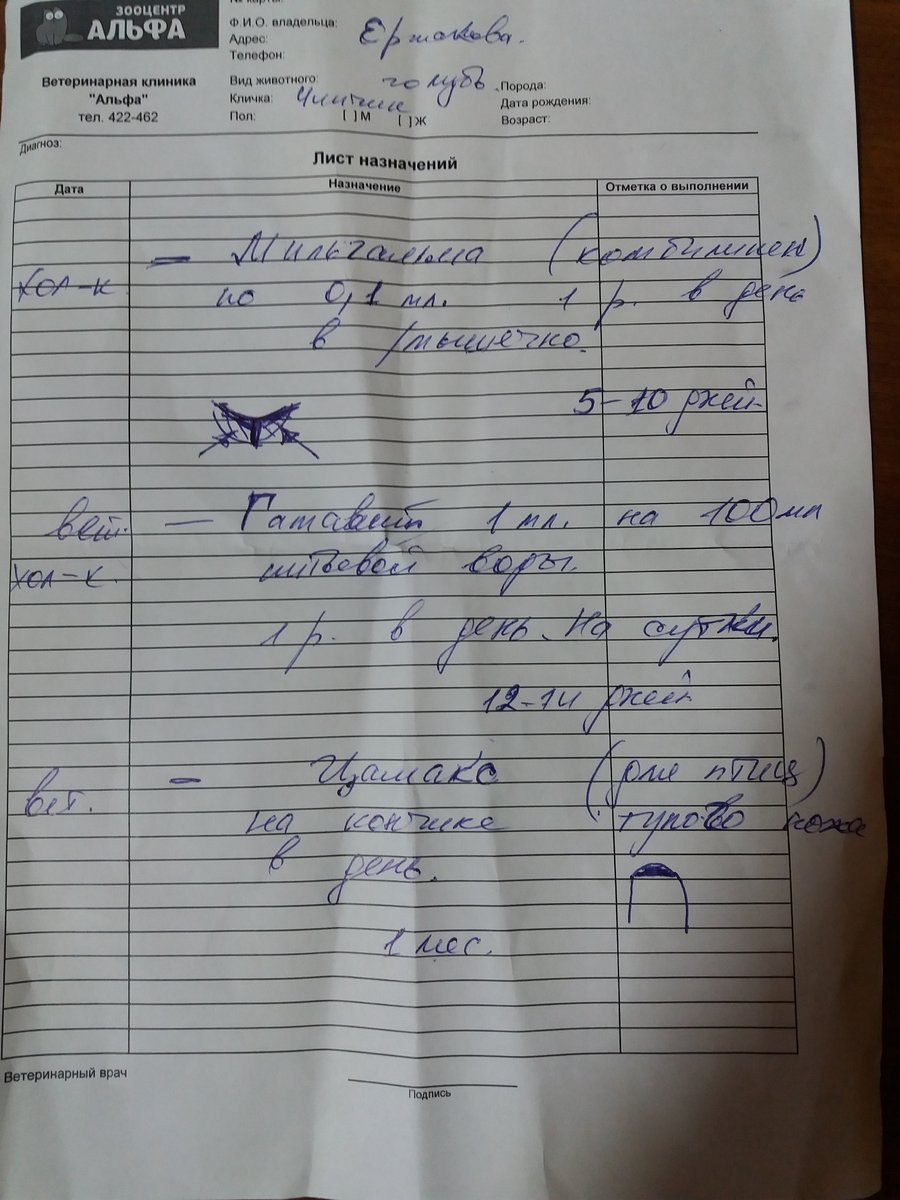 ЗООЦЕНТР
АЛЬФА
Ветеринарная клиника
"Альфа"
тел. 422-462
№ карты:
Ф.И.О. владельца: Ермакова.
Адрес:
Телефон:
Вид животного: голубь. Порода:
Кличка: Дата рождения:
Пол: [ ]М [ ]Ж Возраст:
Диагноз:
Лист назначений
Дата Назначение Отметка о выполнении
— Мильгамма (комбилипен)
хол-к по 0,1 мл. 1 р. в день
в мышечно.
5-10 дней
вет. — Гамавит 1 мл. на 100мл
хол-к. питьевой воды.
1 р. в день. на сутки.
12-14 дней
— Цамакс (для птиц)
вет. на кончике тупого ножа
в день.
1 мес.
Ветеринарный врач
Подпись